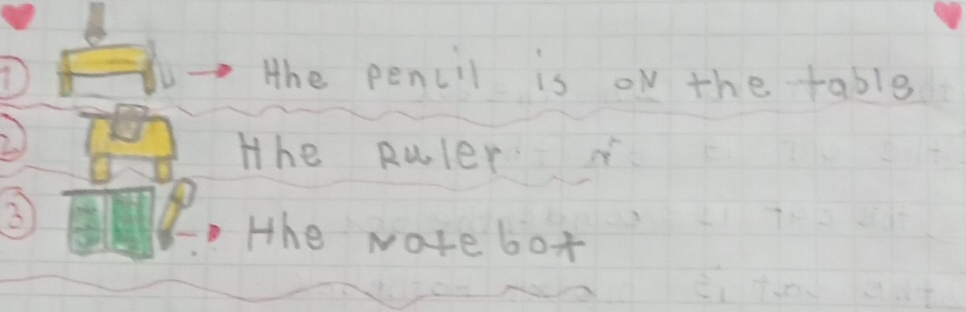 1 Hhe pencil is oN the table
2 Hhe Ruler
3 Hhe Notebot